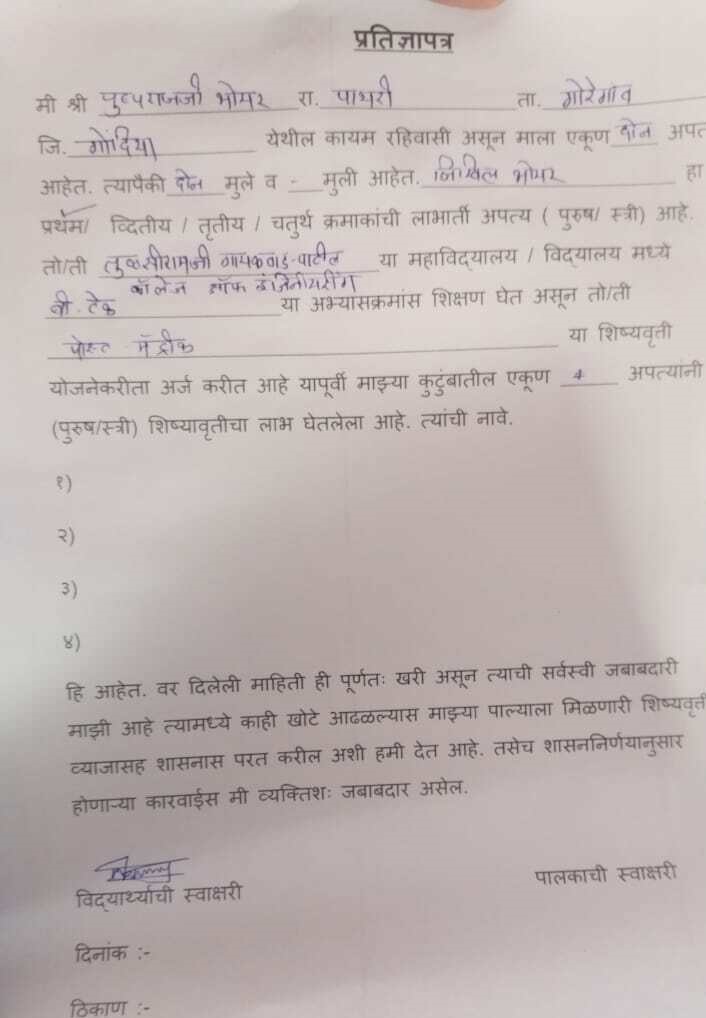 प्रतिज्ञापत्र
मी श्री पुष्पराजजी भोयर रा. पाथरी ता. गोरेगांव
जि. गोंदिया येथील कायम रहिवासी असून माला एकूण दोन अपत
आहेत. त्यापैकी दोन मुले व - मुली आहेत. निखिल भोयर हा
प्रथम/ व्दितीय / तृतीय / चतुर्थ क्रमाकांची लाभार्ती अपत्य ( पुरुष/ स्त्री) आहे.
तो/ती तुळसीरामजी गायकवाड-पाटील या महाविद्यालय / विद्यालय मध्ये
कॉलेज ऑफ इंजिनीयरींग
बी. टेक या अभ्यासक्रमांस शिक्षण घेत असून तो/ती
पोस्ट मॅट्रीक या शिष्यवृती
योजनेकरीता अर्ज करीत आहे यापूर्वी माझ्या कुटुंबातील एकूण अपत्यांनी
(पुरुष/स्त्री) शिष्यावृतीचा लाभ घेतलेला आहे. त्यांची नावे.
१)
२)
३)
४)
हि आहेत. वर दिलेली माहिती ही पूर्णतः खरी असून त्याची सर्वस्वी जबाबदारी
माझी आहे त्यामध्ये काही खोटे आढळल्यास माझ्या पाल्याला मिळणारी शिष्यवृत्ती
व्याजासह शासनास परत करील अशी हमी देत आहे. तसेच शासननिर्णयानुसार
होणाऱ्या कारवाईस मी व्यक्तिशः जबाबदार असेल.
विद्यार्थ्याची स्वाक्षरी पालकाची स्वाक्षरी
दिनांक :-
ठिकाण :-